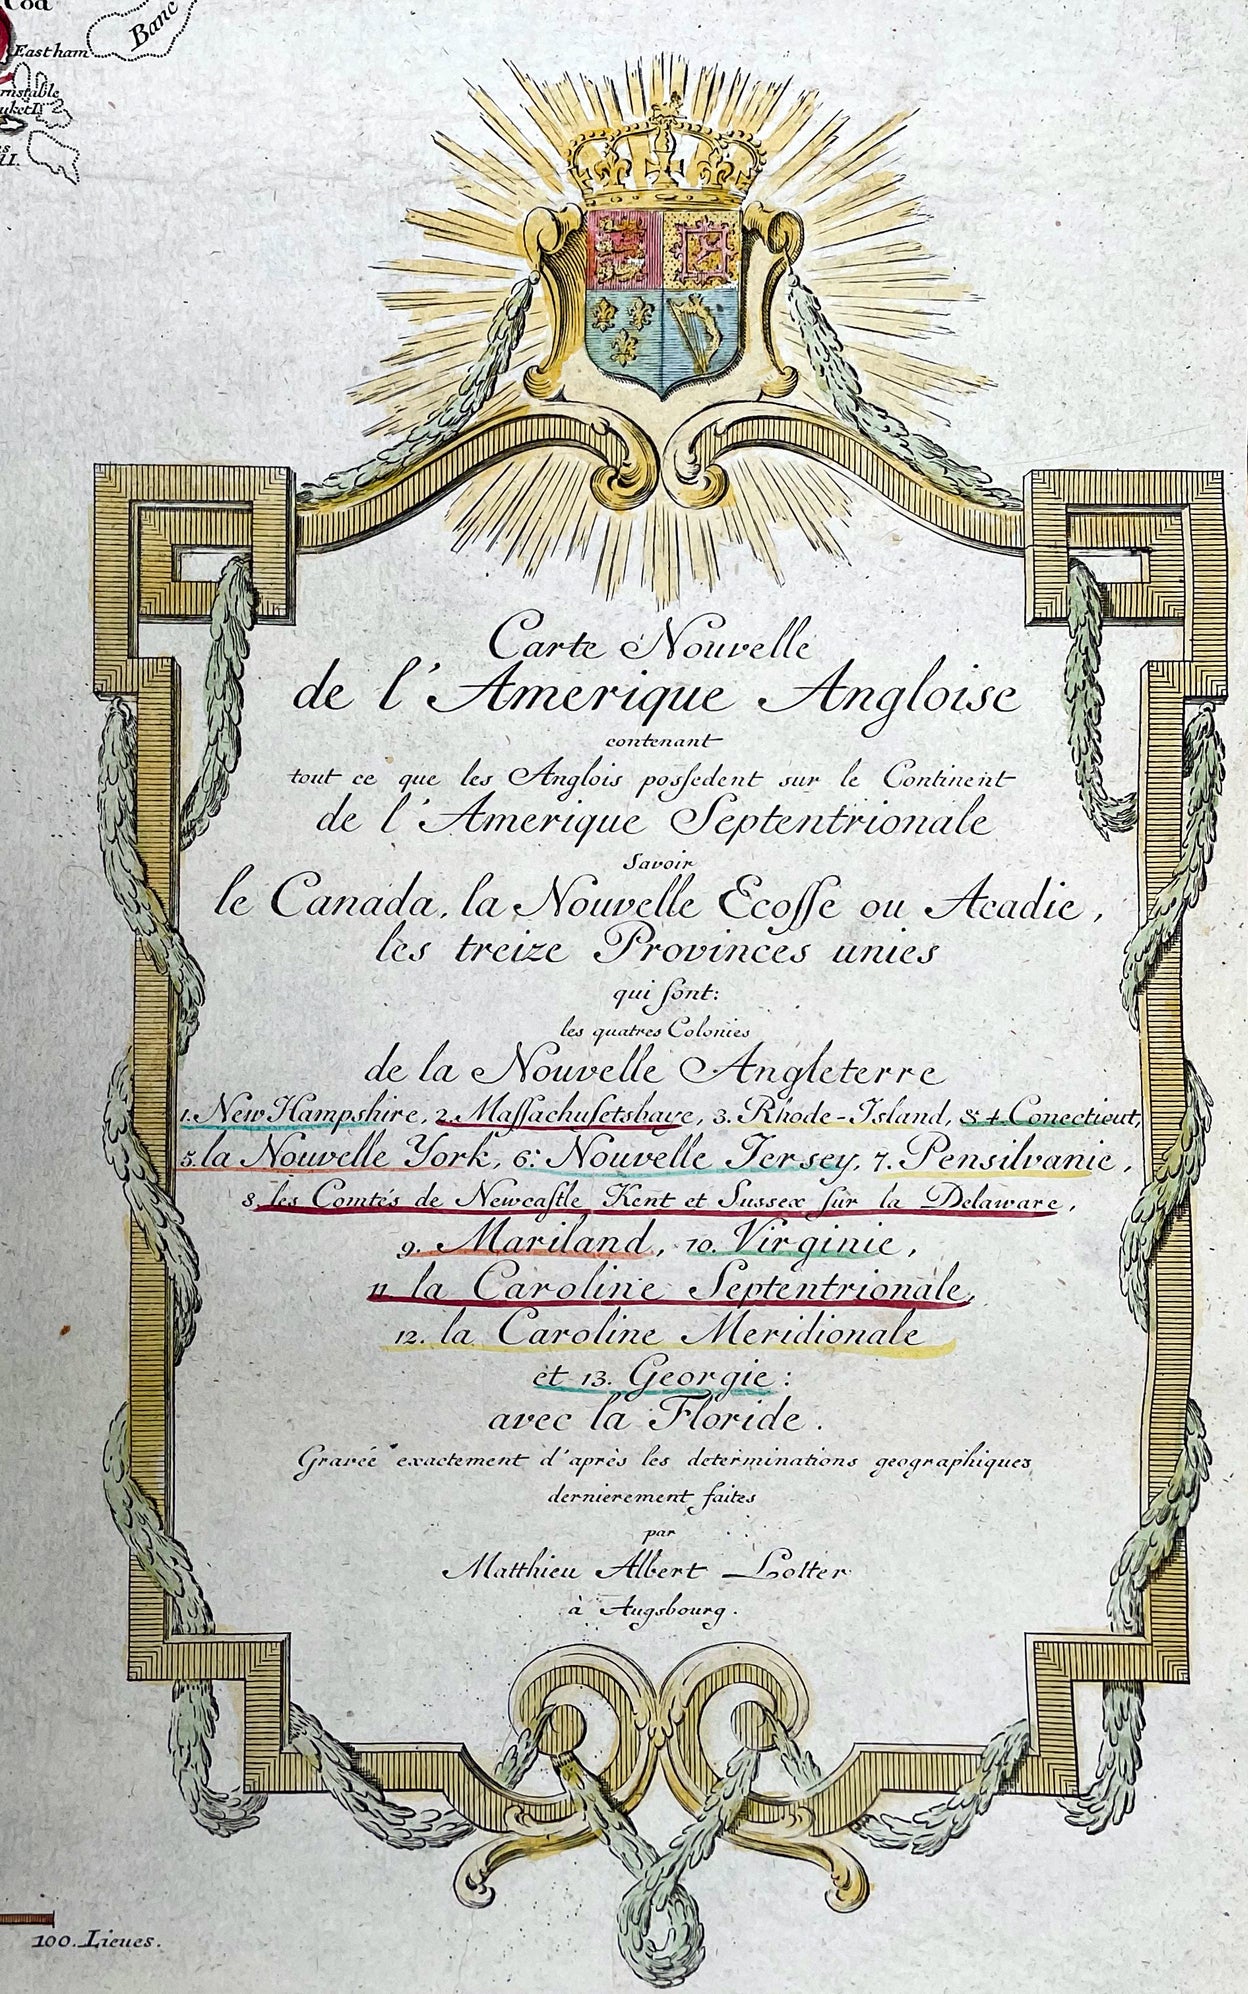 Cod
Banc
Eastham
Carte Nouvelle
de l'Amerique Angloise
contenant
tout ce que les Anglois possedent sur le Continent
de l'Amerique Septentrionale
savoir
le Canada, la Nouvelle Ecosse ou Acadie,
les treize Provinces unies
qui sont:
les quatres Colonies
de la Nouvelle Angleterre
1. New Hampshire, 2. Massachusetsbaye, 3. Rhode-Island, & 4. Conecticut,
5. la Nouvelle York, 6: Nouvelle Jersey, 7. Pensilvanie,
8. les Comtés de Newcastle Kent et Sussex sur la Delaware,
9. Mariland, 10. Virginie,
11 la Caroline Septentrionale,
12. la Caroline Meridionale
et 13. Georgie:
avec la Floride.
Gravée exactement d'après les determinations geographiques
dernierement faites
par
Matthieu Albert Lotter
à Augsbourg.
100. Lieues.